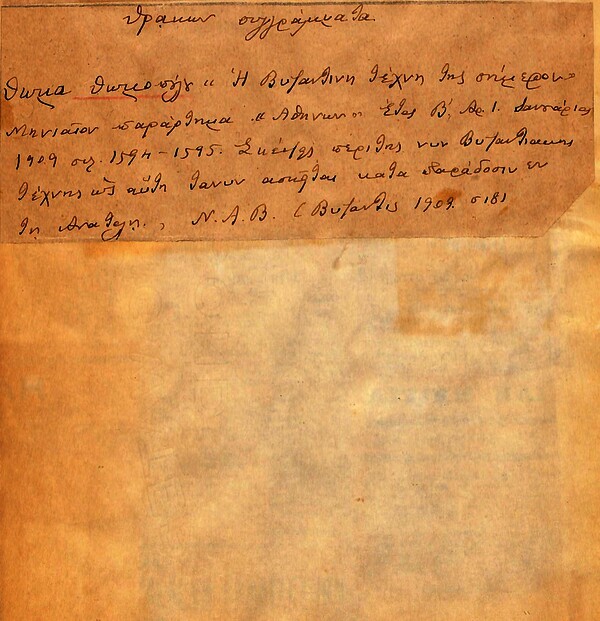 Θρακων συγγράμματα.
Θωμα Θωμοπούλου "Η Βυζαντινη τέχνη της σήμερον"
Μηνιαῖον παράρτημα "Αθηνων" Ετος Β', Αρ. 1. Ιανουάριος
1909 σελ. 1594-1595. Σκέψεις περι της νυν Βυζαντιακης
τέχνης ως αὕτη ασκηται κατα παράδοσιν εν
τη Ανατολη. Ν. Α. Β. (Βυζαντις 1909. σ181